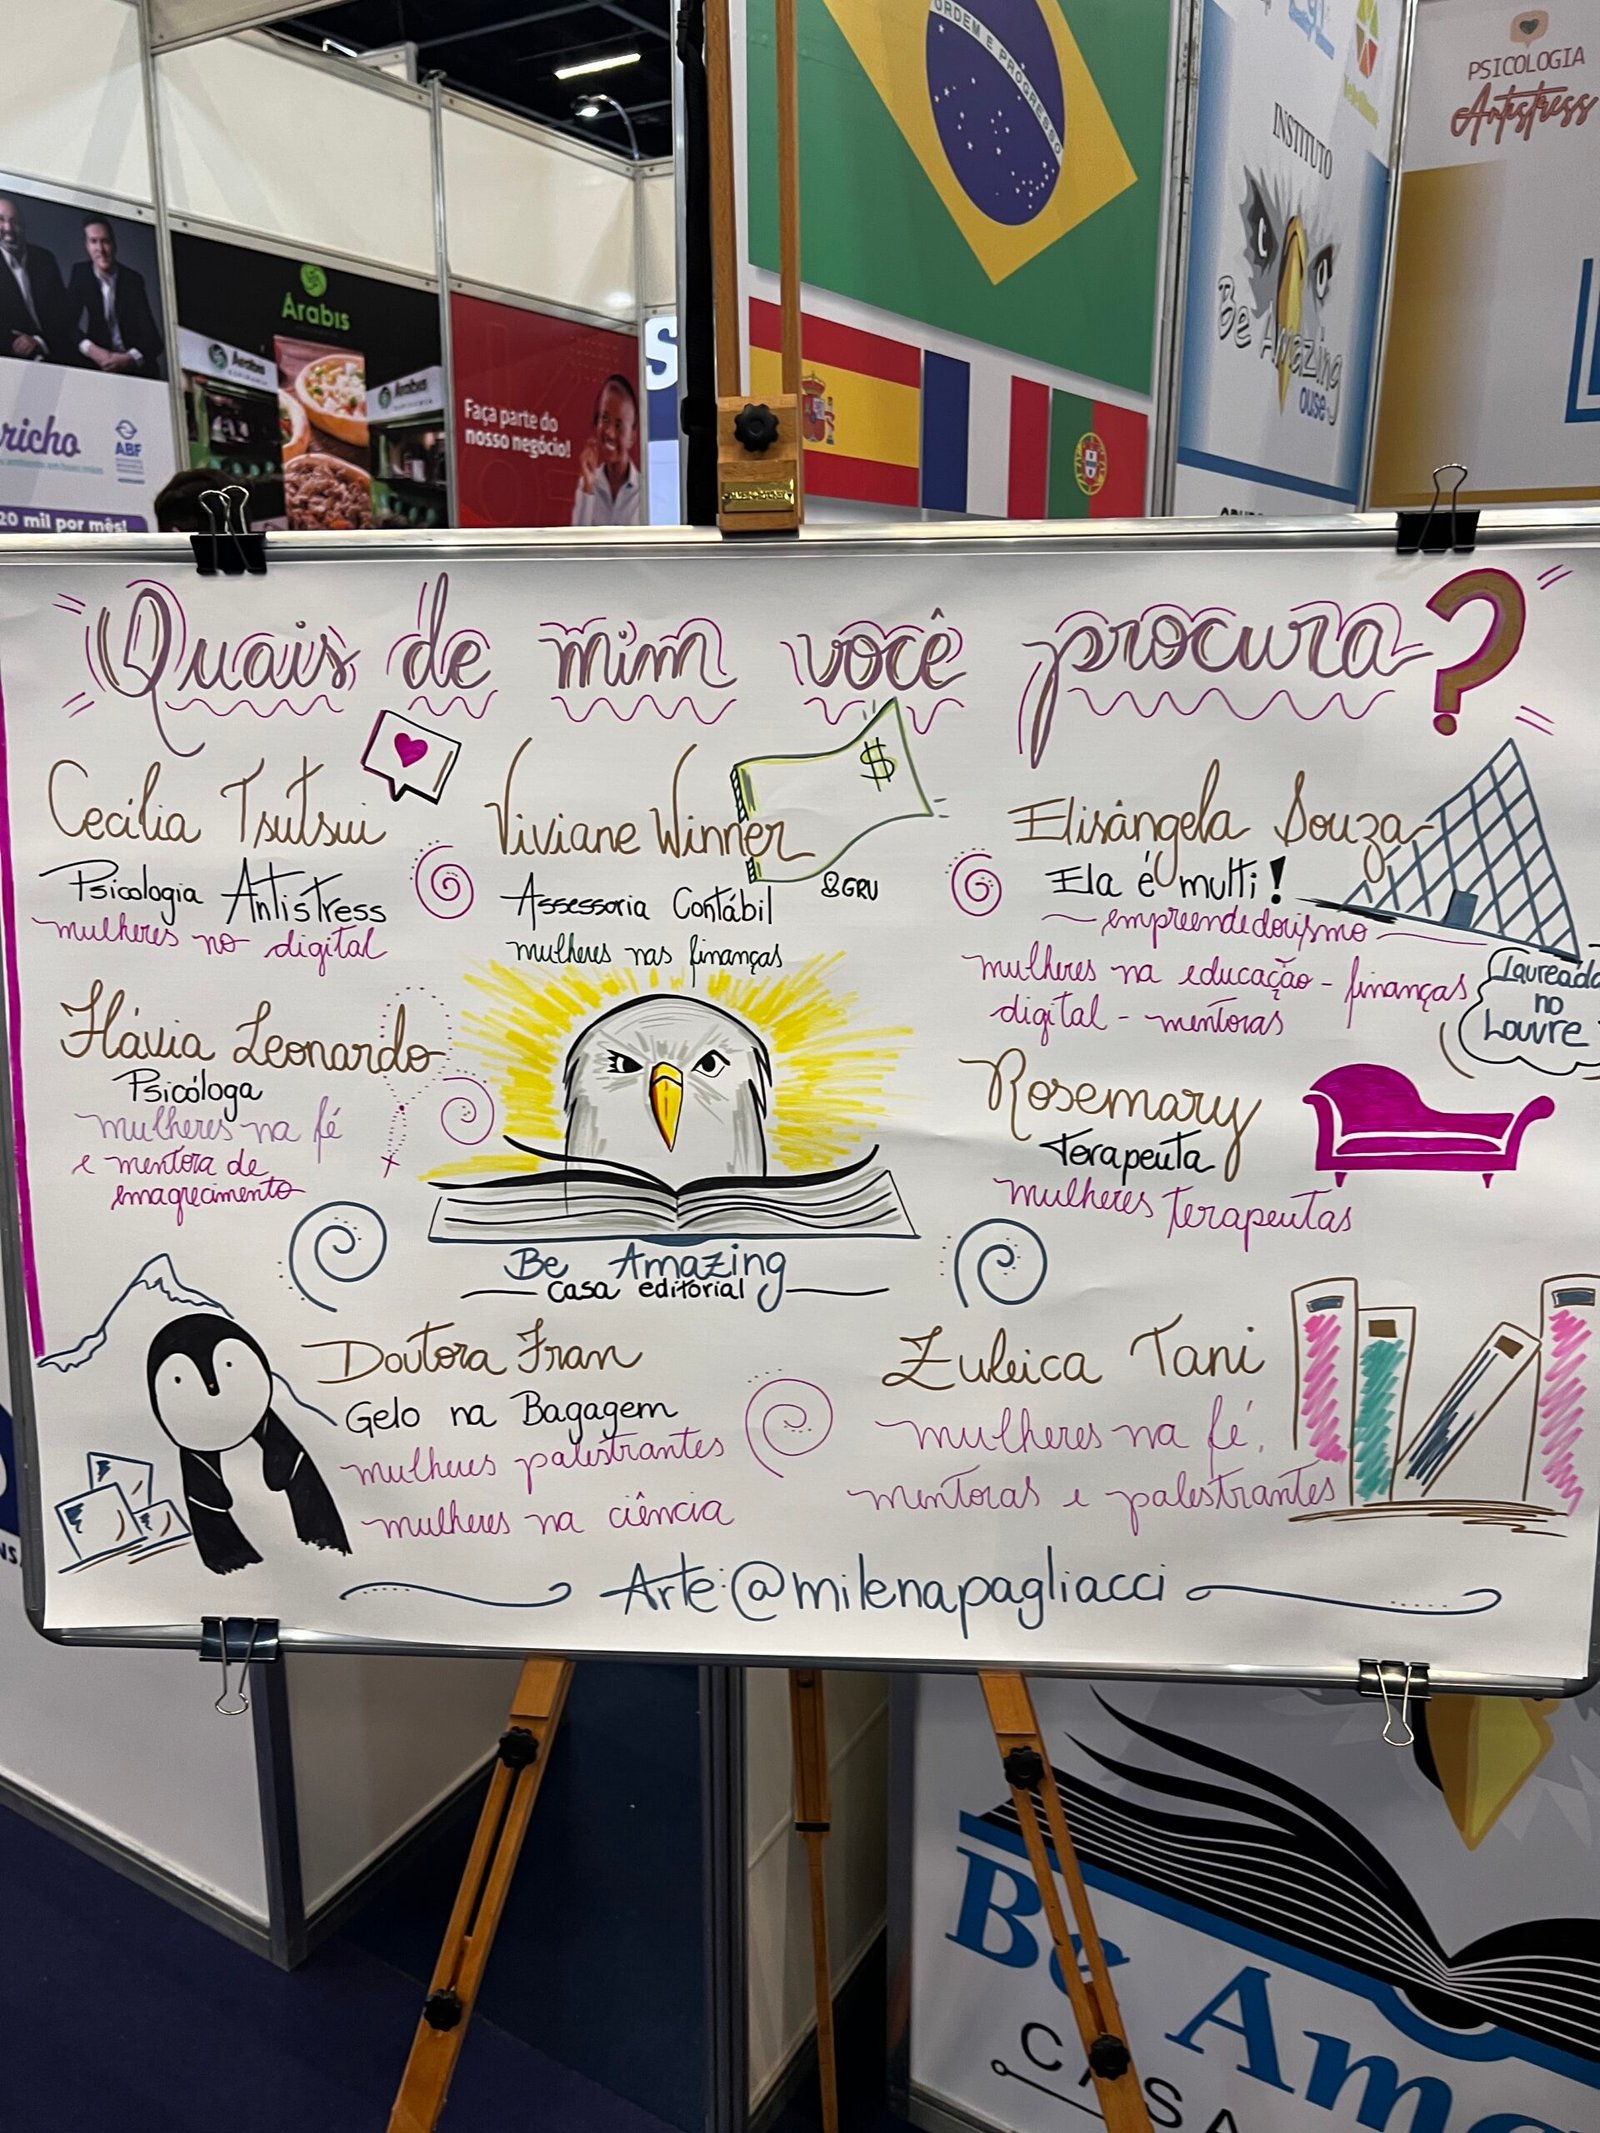 ORDEM E PROGRESSO
PSICOLOGIA
Antistress
INSTITUTO
Be Amazing
ouse
Árabis
Árabis
Árabis
richo
ABF
20 mil por mês!
Faça parte do
nosso negócio!
Quais de mim você procura?
Cecília Tsutsui
Psicologia Antistress
mulheres no digital
Viviane Winner
$
Assessoria Contábil
&GRU
mulheres nas finanças
Elisângela Souza
Ela é multi!
empreendedorismo
mulheres na educação - finanças
digital - mentoras
Laureada
no
Louvre
Flávia Leonardo
Psicóloga
mulheres na fé
e mentora de
emagrecimento
Rosemary
Terapeuta
mulheres terapeutas
Be Amazing
casa editorial
Doutora Fran
Gelo na Bagagem
mulheres palestrantes
mulheres na ciência
Zuleica Tani
mulheres na fé,
mentoras e palestrantes
Arte: @milenapagliacci
Be Ama
CASA